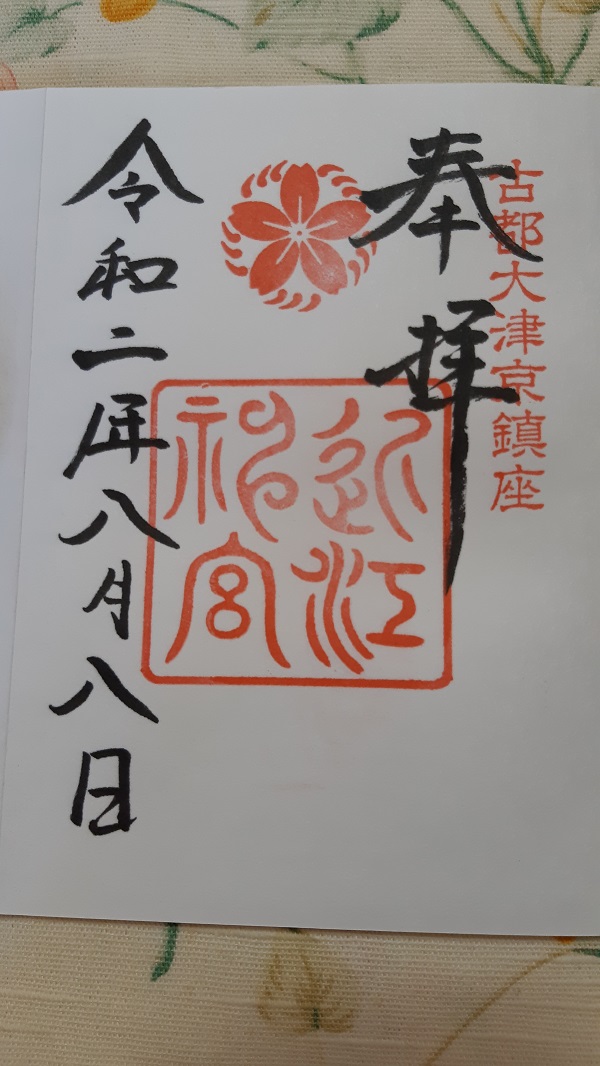 古都大津京鎮座
奉拝
近江神宮
令和二年八月八日